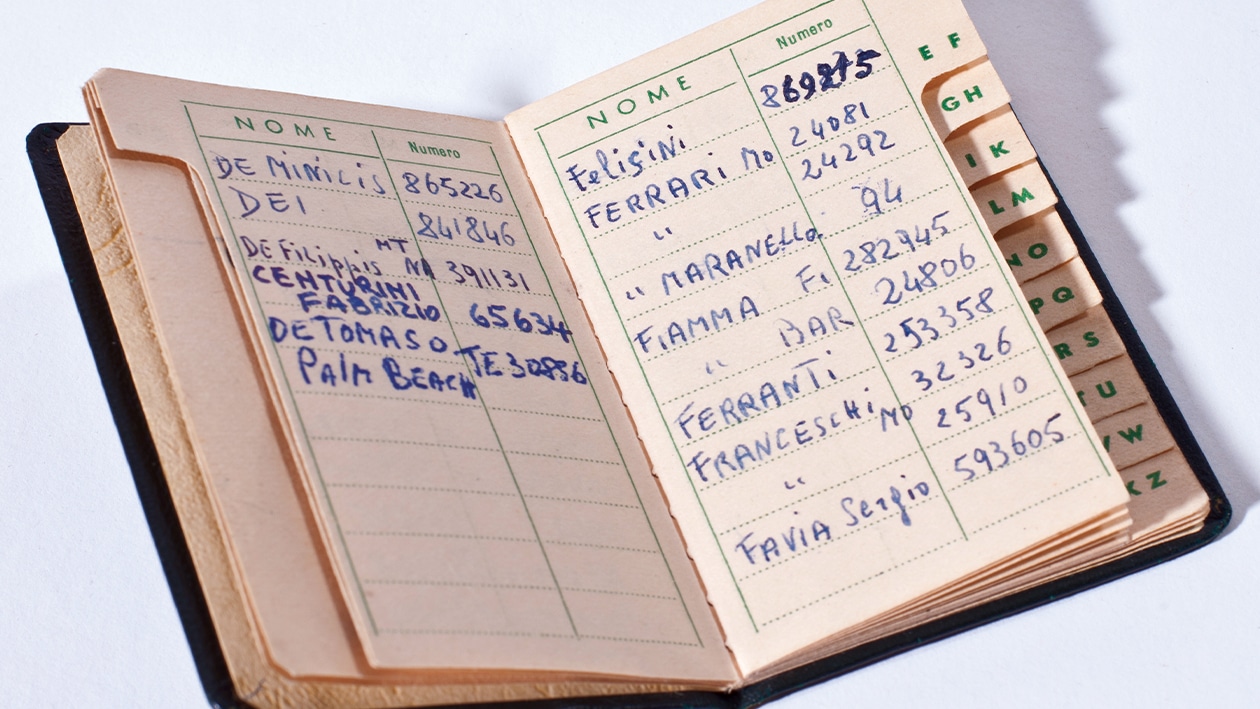 NOME Numero
DE MiNiCiS 865226
DEI 841846
MT
DE FiLippis NA 391131
CENTURINI
FABRIZIO 65634
DE TOMASO
PAlM BEACH TE 30886
NOME Numero
FeliSiNi 869275
FERRARi Mo 24081
" 24292
" MARANELLo 94
FiAMMA Fi 282945
" BAR 24806
FERRANTi 253358
FRANCESCHi MO 32326
" 25910
FAViA Sergio 593605
E F
GH
I K
LM
NO
PQ
R S
TU
W
Z